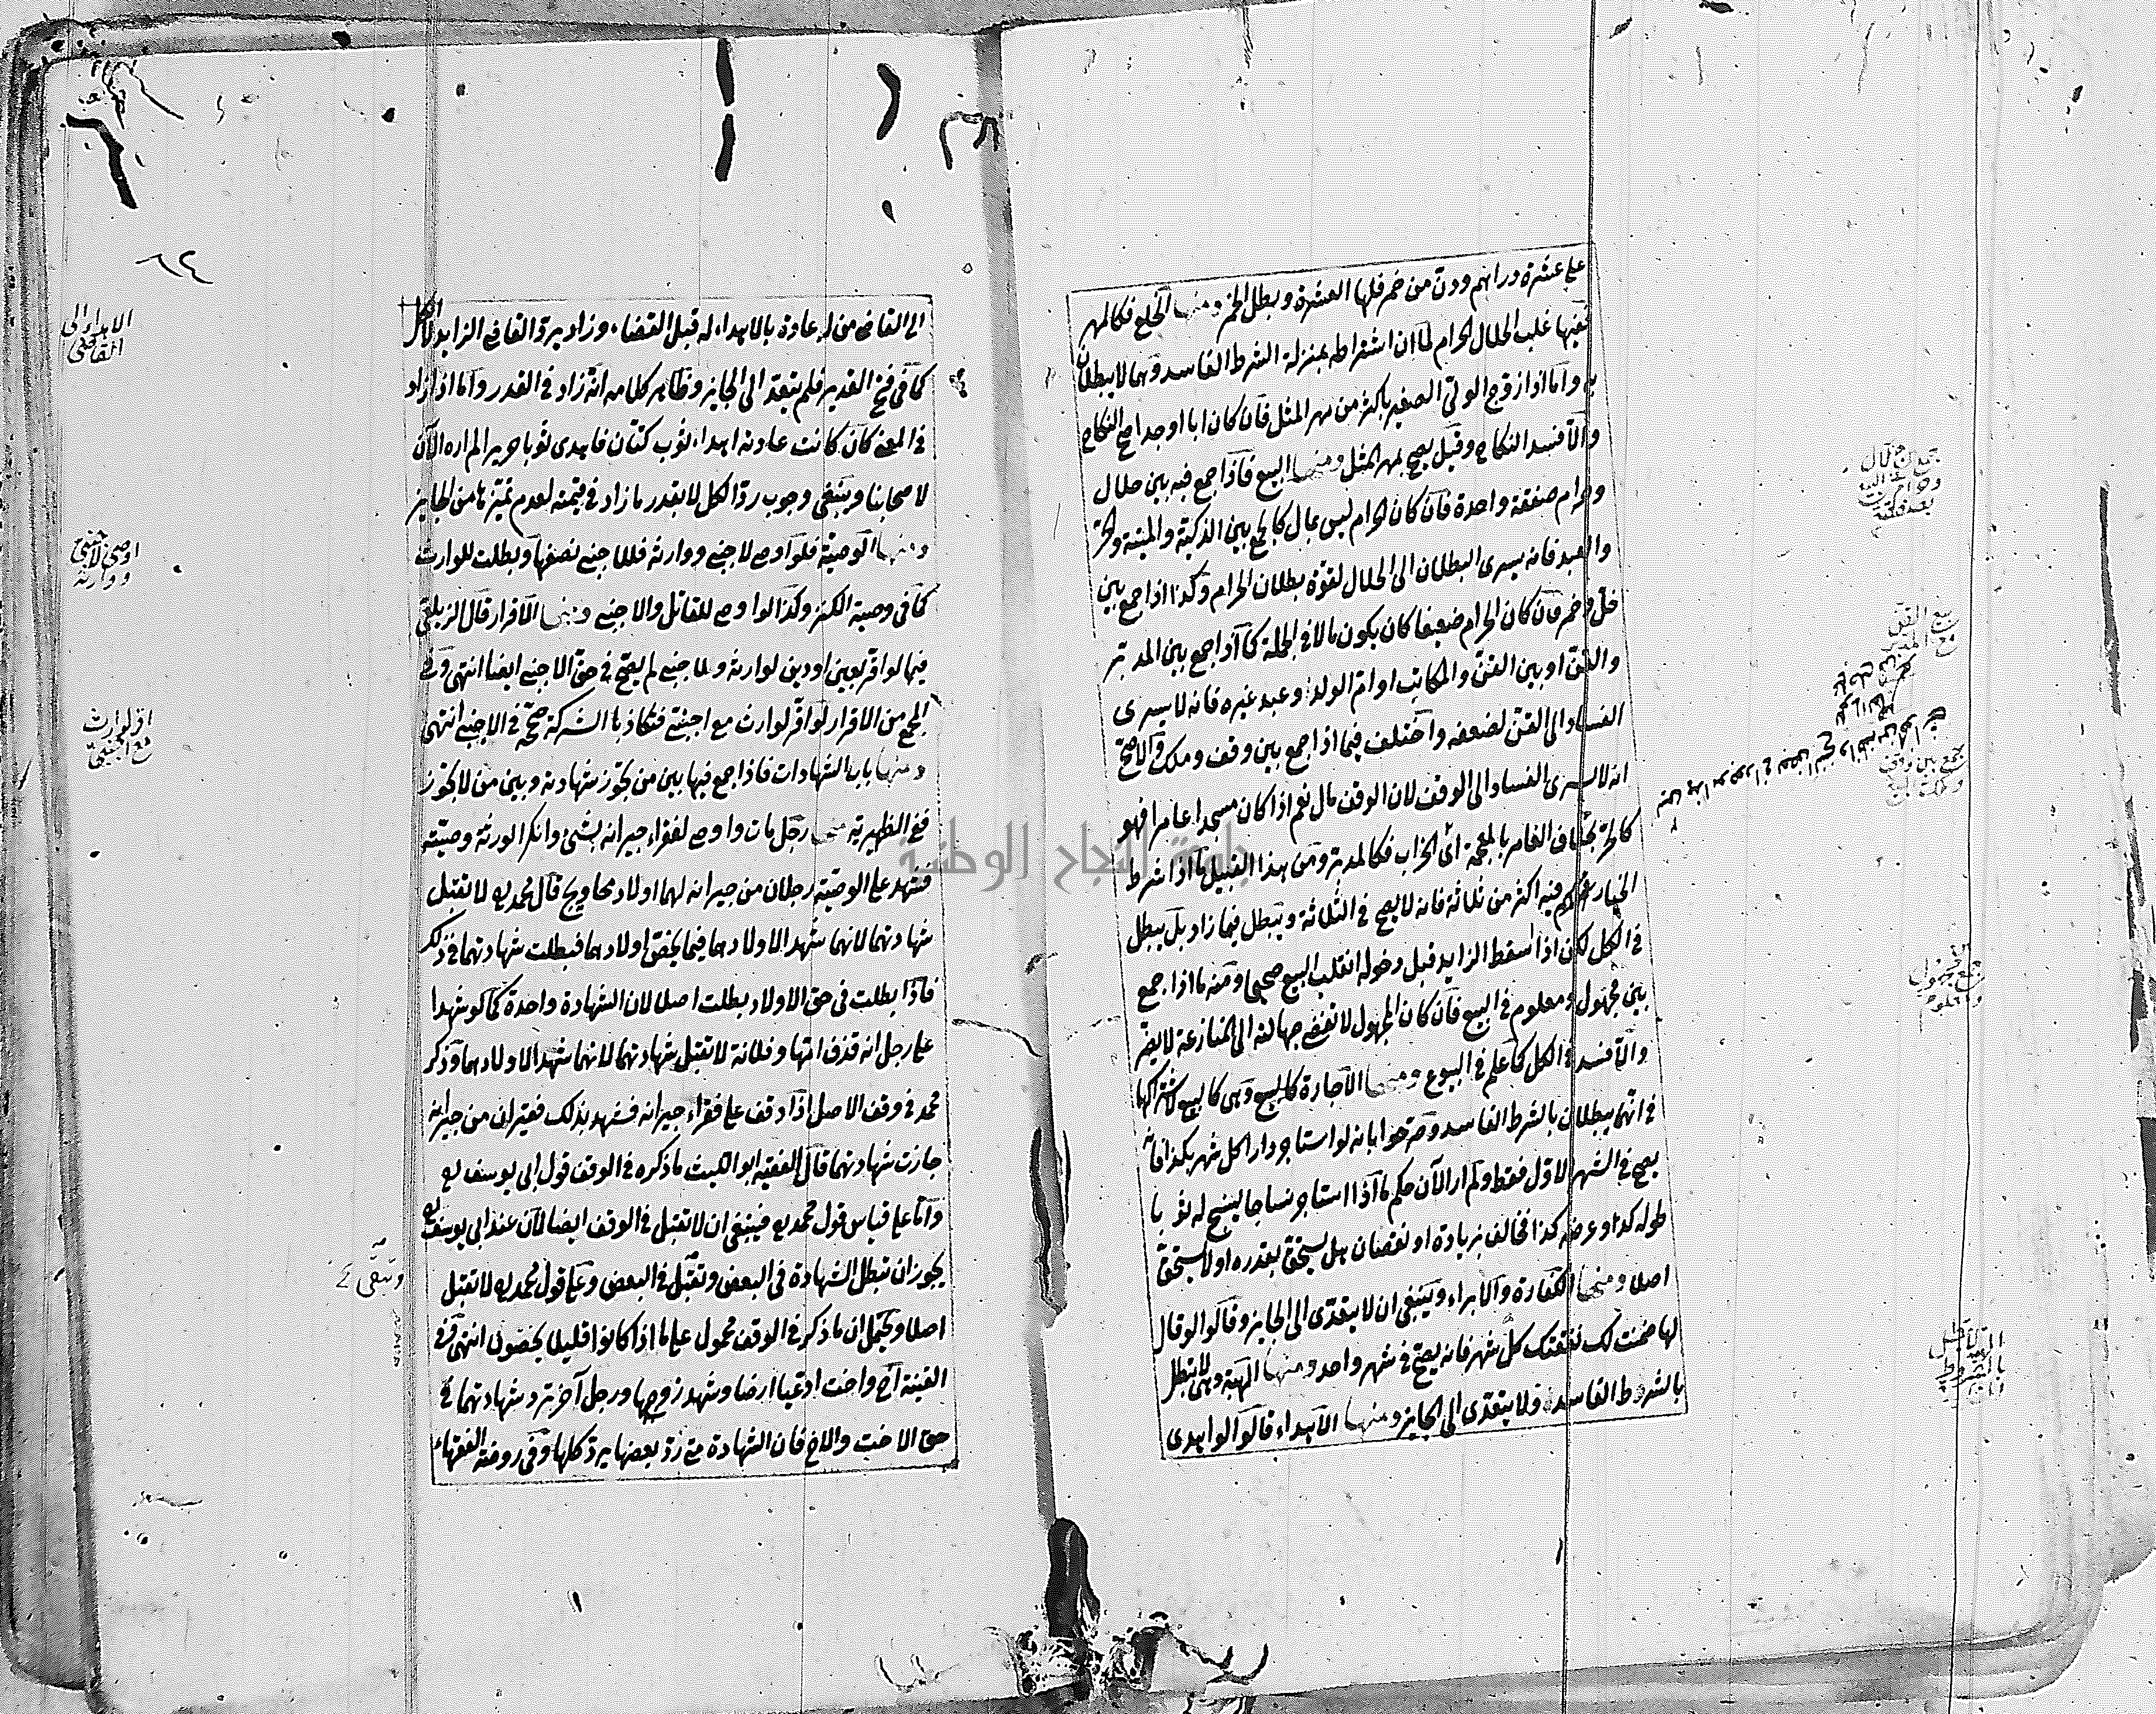 على عشرة دراهم ودن من خمر فلها العشرة وبطل الخمر ومنها الخلع فكالمهر
ففيها غلب الحلال الحرام لما ان اشتراطه بمنزلة الشرط الفاسد وهما لا يبطلان
به واما اذا زوج الولي الصغير باكثر من مهر المثل فان كان ابا او جدا صح النكاح
والا فسد النكاح وقيل يصح بمهر المثل ومنها البيع فاذا جمع فيه بين حلال
وحرام صفقة واحدة فان كان الحرام ليس بمال كالجمع بين الذكية والميتة والحر
والعبد فانه يسرى البطلان الى الحلال لقوة بطلان الحرام وكذا اذا جمع بين
خل وخمر وان كان الحرام ضعيفا كان يكون مالا في الجملة كما اذا جمع بين المدبر
والقن او بين القن والمكاتب او ام الولد او عبد غيره فانه لا يسرى
الفساد الى القن لضعفه واختلف فيما اذا جمع بين وقف وملك والاصح
انه لا يسرى الفساد الى الوقف لان الوقف مال نعم اذا كان مسجدا عامرا فهو
كالحر بخلاف الغامر بالمعجمة اى الخراب فكالمدبر ومن هذا القبيل ما اذا شرط
الخيار فيه اكثر من ثلثة فانه لا يصح في الثلاثة ويبطل فيما زاد بل يبطل
في الكل لكن اذا اسقط الزايد قبل دخوله انقلب البيع صحيحا ومنه ما اذا جمع
بين مجهول ومعلوم في البيع فان كان المجهول لا تفضى جهالته الى المنازعة لا يضر
والا فسد في الكل كما علم في البيوع ومنها الاجارة كالبيع وهى كالبيع لاشتراكهما
في انهما يبطلان بالشرط الفاسد وصرحوا بانه لو استاجر دارا كل شهر بكذا فانه
يصح في الشهر الاول فقط ولم ار الآن حكم ما اذا استاجر نساجا لينسج له ثوبا
طوله كذا وعرضه كذا فخالف بزيادة او نقصان هل يستحق بقدره او لا يستحق
اصلا ومنها الكفارة والابراء وينبغى ان لا يتعدى الى الجايز وقالوا لو قال
لها ضمنت لك نفقتك كل شهر فانه يصح في شهر واحد ومنها الهبة وهى لا تبطل
بالشروط الفاسدة ولا يتعدى الى الجايز ومنها الاهداء قالوا لو اهدى
٦٤
الى القاضى من له عادة بالاهداء له قبل القضاء وزاد يرد القاضى الزايد لا الكل
كما في فتح القدير فلم يتعد الى الجايز وظاهر كلامه انه زاد في القدر واما اذا زاد
في المعنى كان كانت عادته اهداء ثوب كتان فاهدى ثوبا حريرا لم اره الآن
لاصحابنا وينبغى وجوب رد الكل لا بقدر ما زاد في قيمته لعدم تميزها من الجايز
ومنها الوصية فلو اوصى لاجنبى ووارثه فللاجنبى نصفها وبطلت للوارث
كما في وصية الكنز وكذا لو اوصى للقاتل والاجنبى ومنها الاقرار قال الزيلعى
فيها لو اقر بعين او دين لوارثه ولاجنبى لم يصح في حق الاجنبى ايضا انتهى وفى
المجمع من الاقرار لو اقر لوارث مع اجنبى فتكاذبا الشركة صححه في الاجنبى انتهى
ومنها باب الشهادات فاذا جمع فيها بين من تجوز شهادته وبين من لا تجوز
ففى الظهيرية منها رجل مات واوصى لفقراء جيرانه بشئ وانكر الورثة وصيته
فشهد على الوصية رجلان من جيرانه لهما اولاد محاويج قال محمد ره لا تقبل
شهادتهما لانهما شهدا لاولادهما فيما يخص اولادهما فبطلت شهادتهما في ذلك
فاذا بطلت في حق الاولاد بطلت اصلا لان الشهادة واحدة كما لو شهدا
على رجل انه قذف امهما وفلانة لا تقبل شهادتهما لانهما شهدا لاولادهما وذكر
محمد في وقف الاصل اذا وقف على فقراء جيرانه فشهد بذلك فقيران من جيرانه
جازت شهادتهما قال الفقيه ابو الليث ما ذكره في الوقف قول ابى يوسف ره
واما على قياس قول محمد ره فينبغى ان لا تقبل في الوقف ايضا لان عند ابى يوسف ره
يجوز ان تبطل الشهادة في البعض وتقبل في البعض وعلى قول محمد ره لا تقبل
اصلا ويحتمل ان ما ذكر في الوقف محمول على ما اذا كانوا قليلا يحصون انتهى وفى
القنية اخ واخت ادعيا ارضا وشهد زوجها ورجل آخر ترد شهادتهما في
حق الاخت والاخ فان الشهادة متى رد بعضها يرد كلها وفى روضة الفقهاء
الاهداء الى
القاضى
اوصى لاجنبى
ووارثه
اقر لوارث
مع اجنبى
وتبقى
بيع القن
مع المدبر
جمع بين وقف
وملك
جمع مجهول
ومعلوم
جامعة النجاح الوطنية